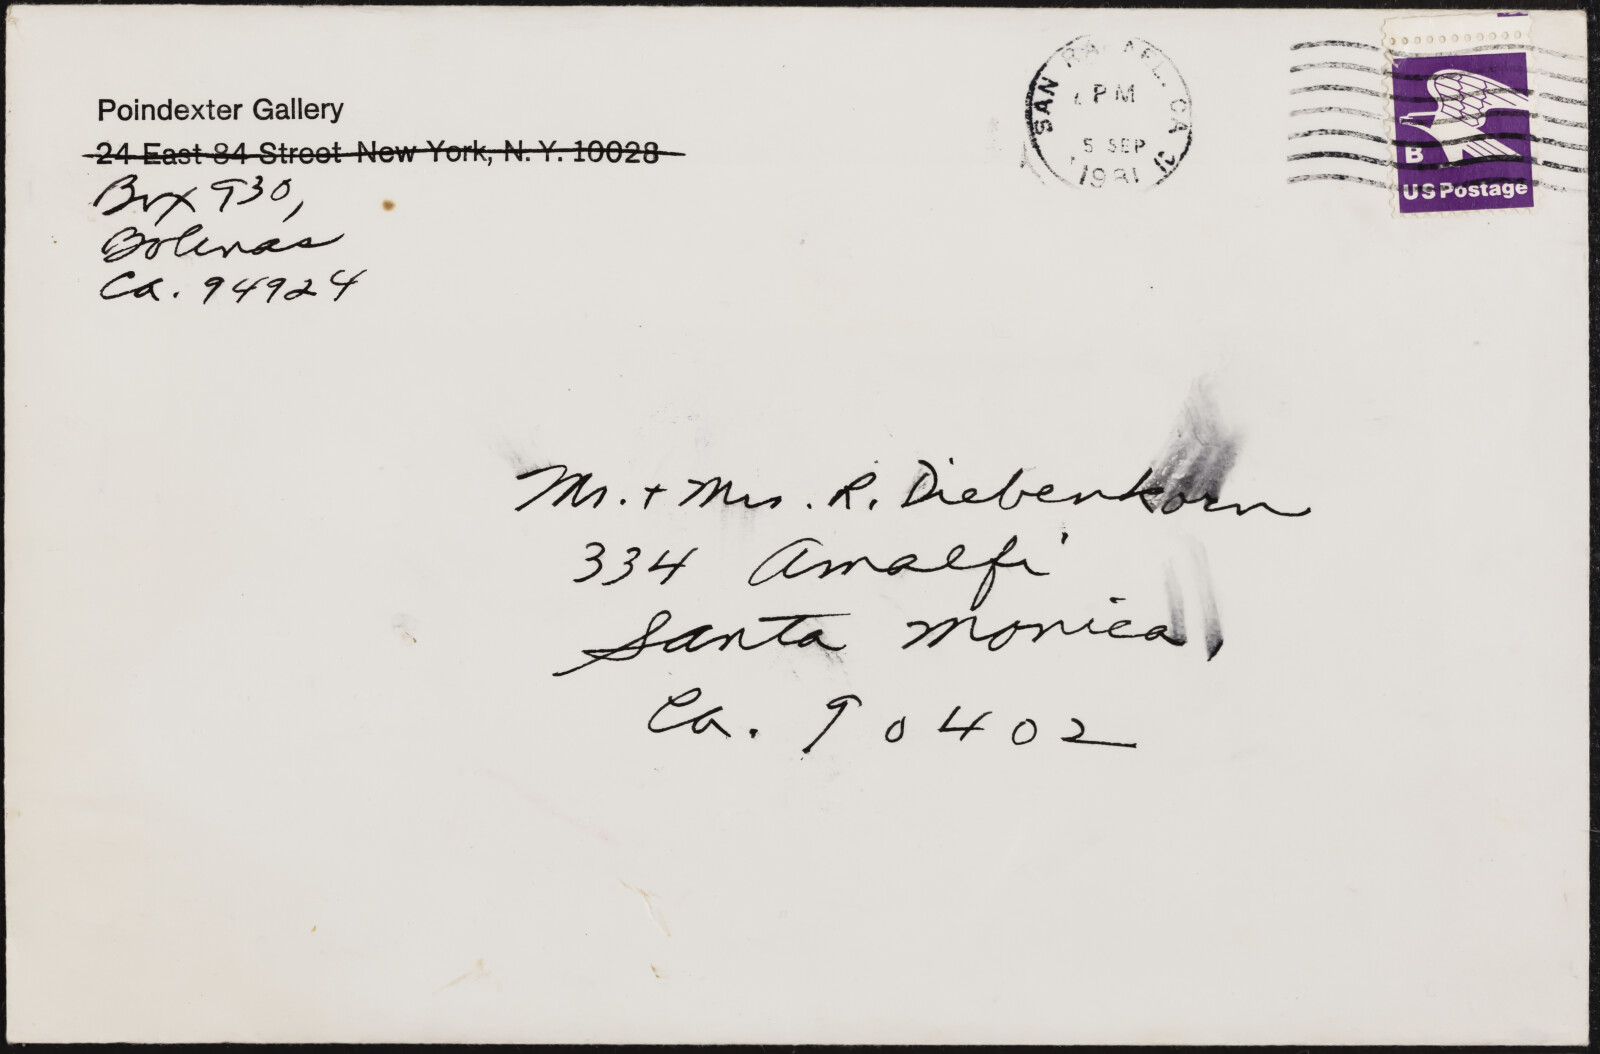 Poindexter Gallery
24 East 84 Street New York, N. Y. 10028
Box 930,
Bolinas
Ca. 94924
SAN RAFAEL, CA
PM
5 SEP
1981
B
US Postage
Mr. + Mrs. R. Diebenkorn
334 Amalfi
Santa Monica,
Ca. 90402